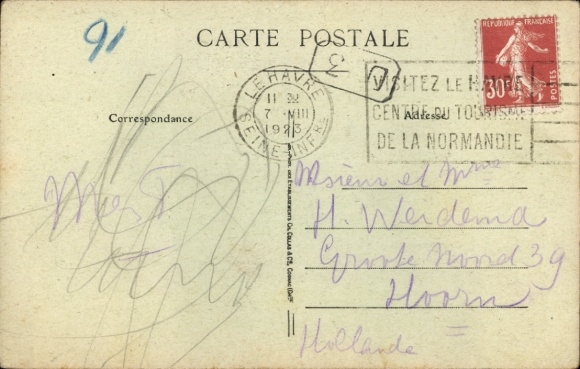 91
CARTE POSTALE
RÉPUBLIQUE FRANÇAISE
30c
POSTES
3
LE HAVRE
7 VIII
1923
SEINE-INFRE
VISITEZ LE HAVRE
CENTRE DU TOURISME
DE LA NORMANDIE
Correspondance
Adresse
Msieur et Mme
H. Werdema
Groote Noord 39
Hoorn
Hollande